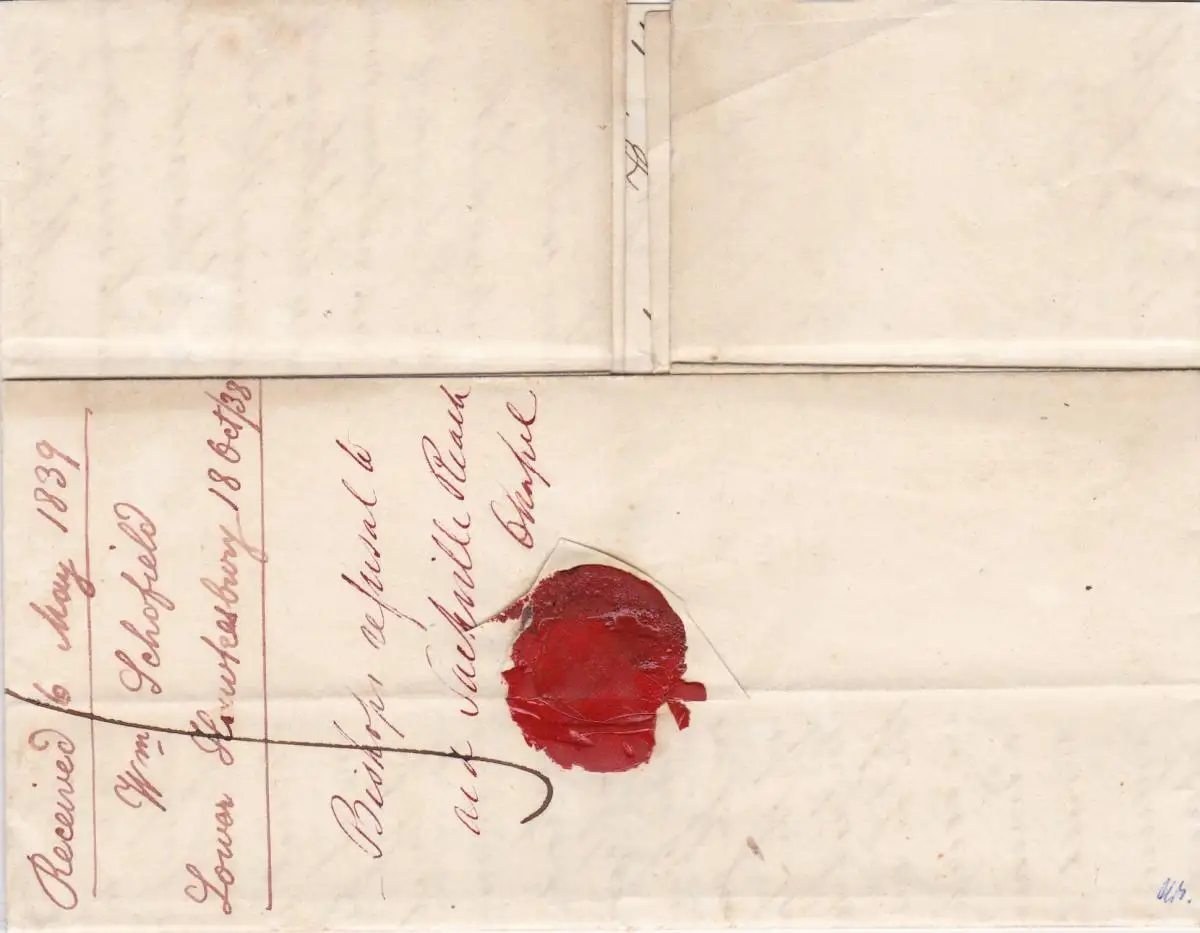 Received 6 May 1839
Wm Schofield
Lower Hawkesbury 18 Oct/38
Bishops refusal to
aid Sackville Reach
Chapel